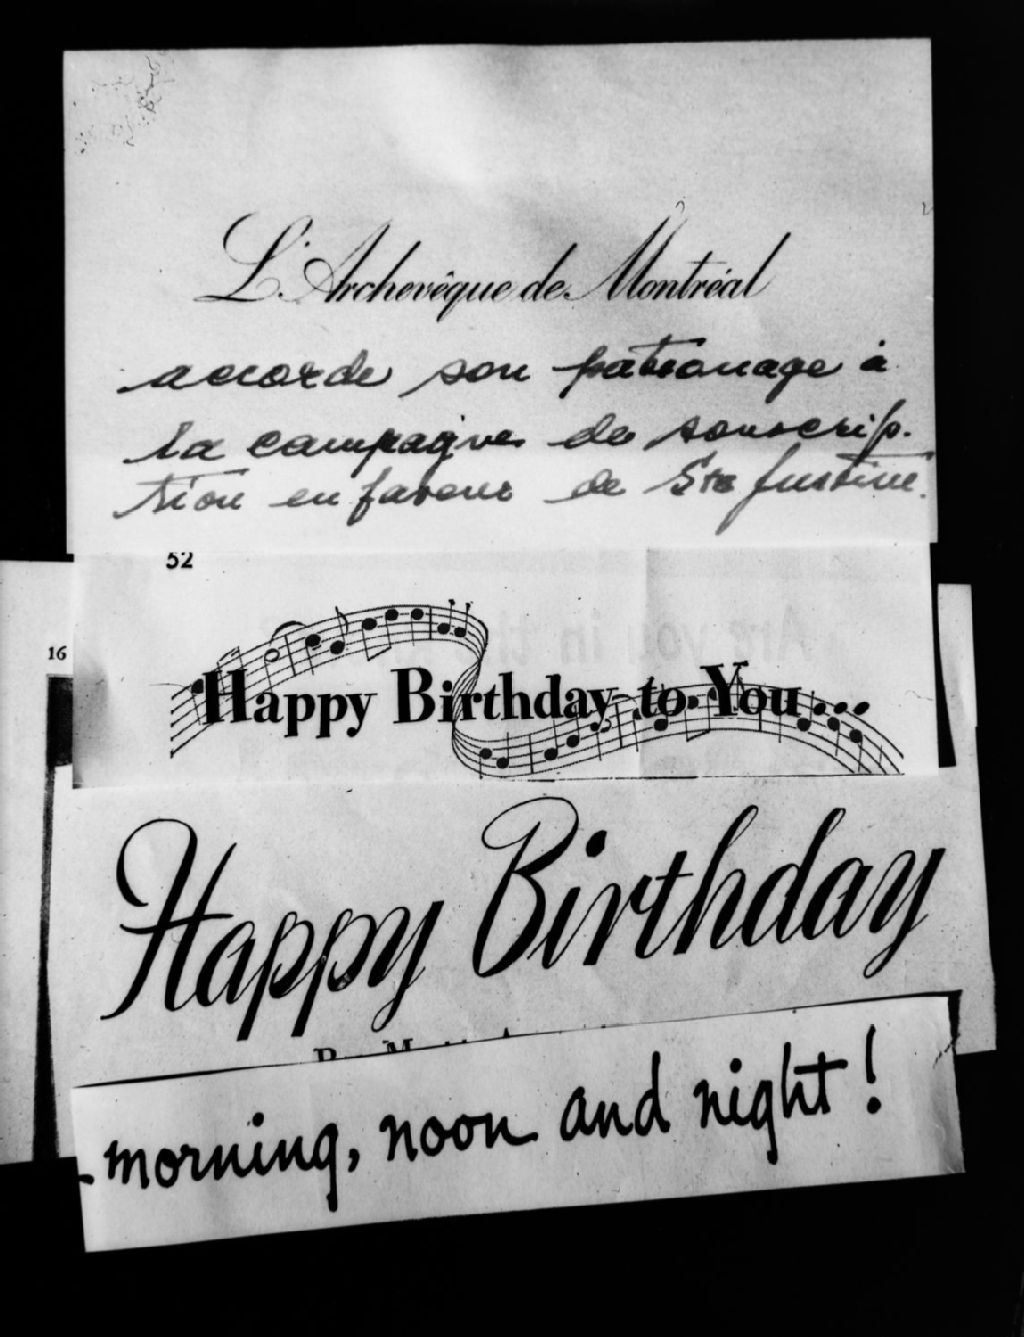 L'Archevêque de Montréal
accorde son patronage à
la campagne de souscrip-
tion en faveur de Ste Justine.
52
16
Happy Birthday to You...
Happy Birthday
morning, noon and night!